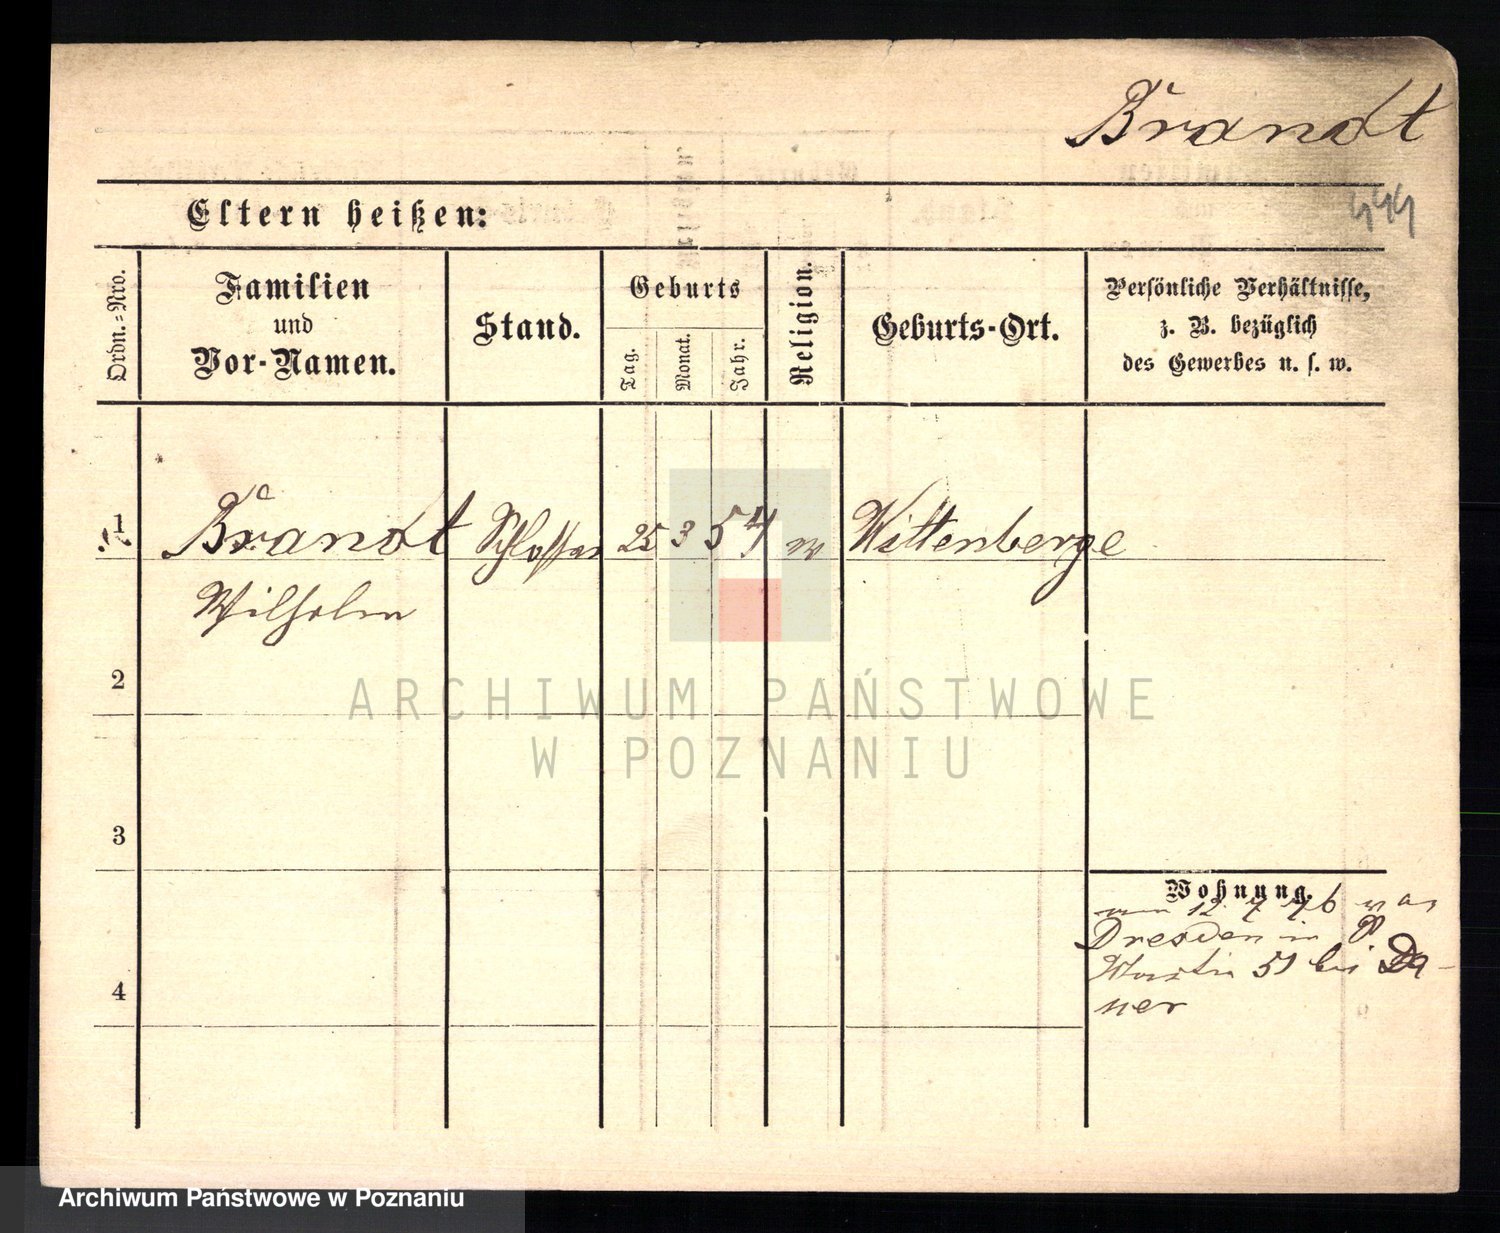 Brandt
Eltern heißen:
Ordn.=Nro.
Familien
und
Vor-Namen.
Stand.
Geburts
Tag.
Monat.
Jahr.
Religion.
Geburts-Ort.
Persönliche Verhältnisse,
z. B. bezüglich
des Gewerbes u. s. w.
1
Brandt Schlosser 25 3 54 Wittenberge
Wilhelm
2
ARCHIWUM PAŃSTWOWE
W POZNANIU
3
Wohnung.
12 7 76
Dresden in
Martin 51 bei Da-
ner
4
Archiwum Państwowe w Poznaniu